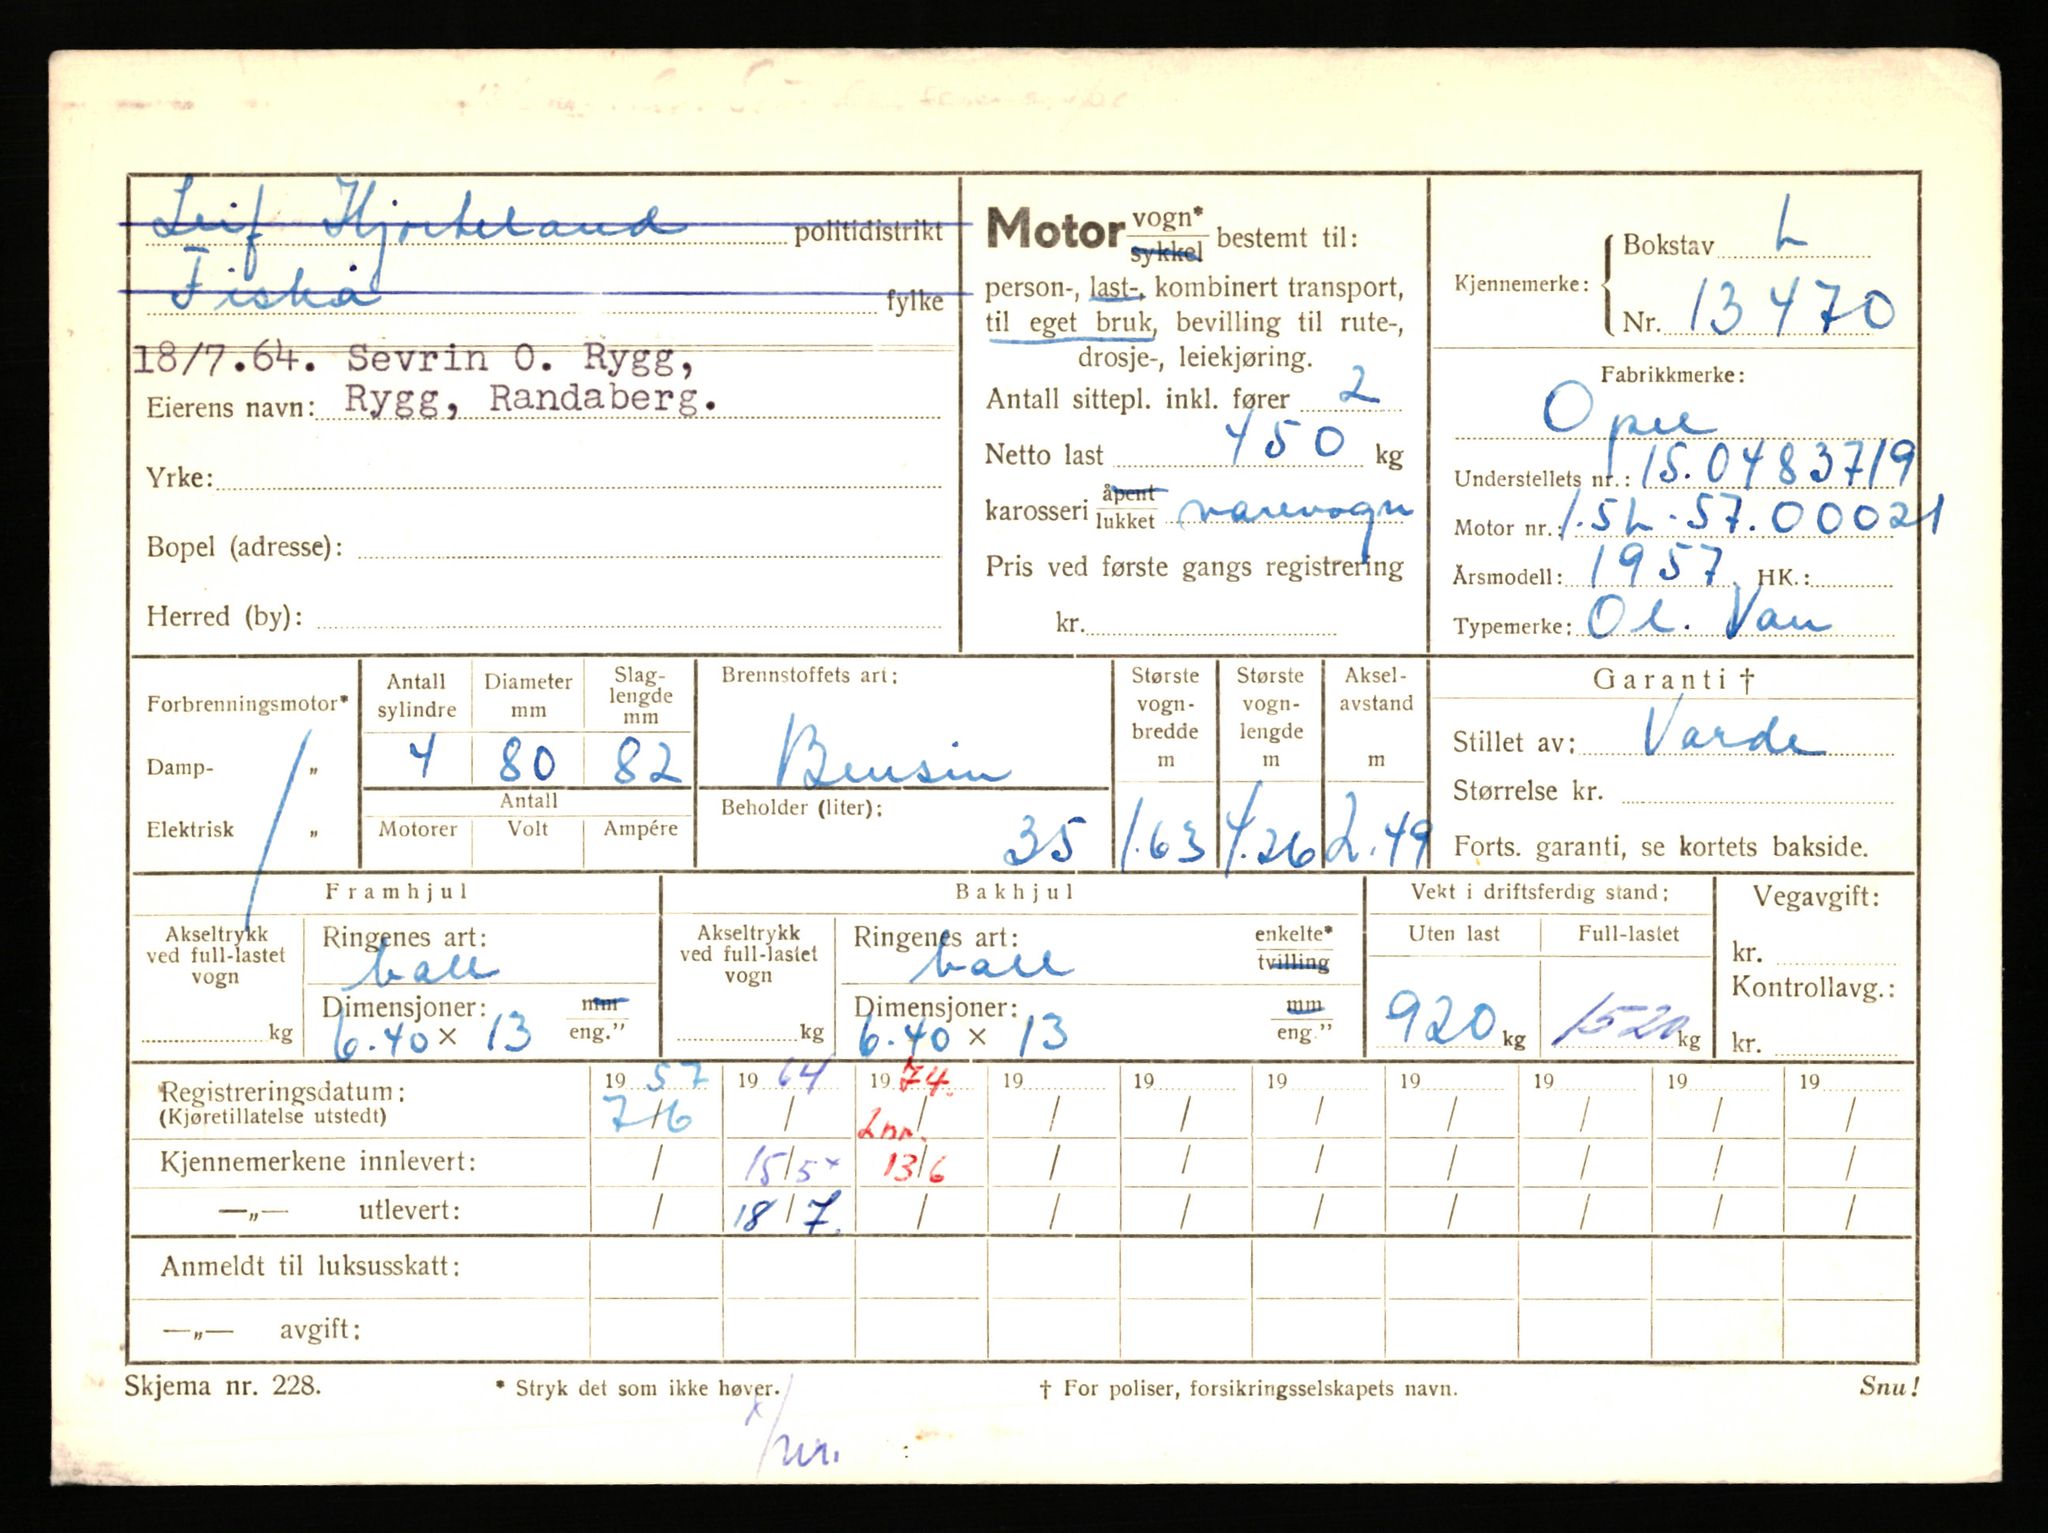 Leif Hjorteland politidistrikt
Fiskå fylke
18/7.64. Sevrin O. Rygg,
Eierens navn: Rygg, Randaberg.
Yrke:
Bopel (adresse):
Herred (by):
Motor vogn* sykkel bestemt til:
person-, last-, kombinert transport,
til eget bruk, bevilling til rute-,
drosje-, leiekjøring.
Antall sittepl. inkl. fører 2
Netto last 450 kg
karosseri åpent lukket varevogn
Pris ved første gangs registrering
kr.
Kjennemerke: Bokstav L
Nr. 13470
Fabrikkmerke:
Opel
Understellets nr.: 15.0483719
Motor nr.: 1.5L.57.00021
Årsmodell: 1957 HK.:
Typemerke: Ol. Van
Forbrenningsmotor*
Damp- „
Elektrisk „
Antall sylindre
4
Diameter mm
80
Slag-lengde mm
82
Antall
Motorer Volt Ampére
Brennstoffets art:
Bensin
Beholder (liter):
35
Største vogn-bredde m
1.63
Største vogn-lengde m
4.26
Aksel-avstand m
2.49
Garanti †
Stillet av: Varde
Størrelse kr.
Forts. garanti, se kortets bakside.
Framhjul
Akseltrykk ved full-lastet vogn
kg
Ringenes art:
ball
Dimensjoner: mm
6.40 × 13 eng."
Bakhjul
Akseltrykk ved full-lastet vogn
kg
Ringenes art: enkelte*
ball tvilling
Dimensjoner: mm
6.40 × 13 eng."
Vekt i driftsferdig stand:
Uten last Full-lastet
920 kg 1520 kg
Vegavgift:
kr.
Kontrollavg.:
kr.
Registreringsdatum: 19 57 19 64 19 74. 19 19 19 19 19 19 19
(Kjøretillatelse utstedt) 7/6 / Lnr. / / / / / / / /
Kjennemerkene innlevert: / 15/5x 13/6 / / / / / / /
—„— utlevert: / 18/7. / / / / / / / /
Anmeldt til luksusskatt:
—„— avgift:
Skjema nr. 228. * Stryk det som ikke høver. † For poliser, forsikringsselskapets navn. Snu!